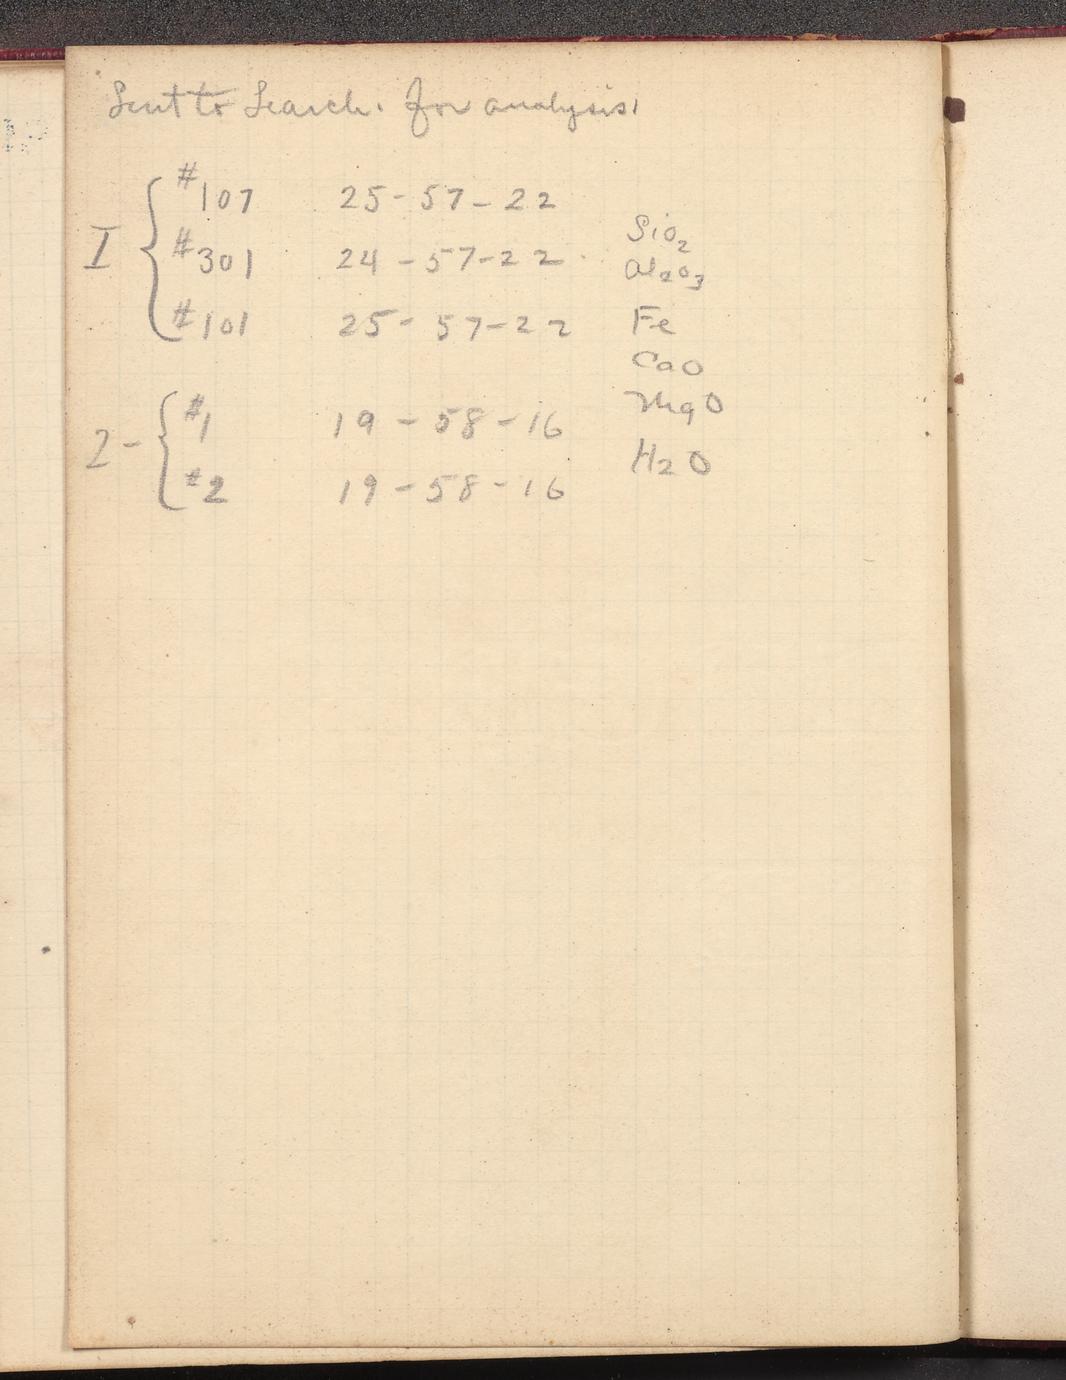 Sent to Search. for analysis.
I { #107 25-57-22
#301 24-57-22
#101 25-57-22
2- { #1 19-58-16
#2 19-58-16
SiO2
Al2O3
Fe
CaO
MgO
H2O